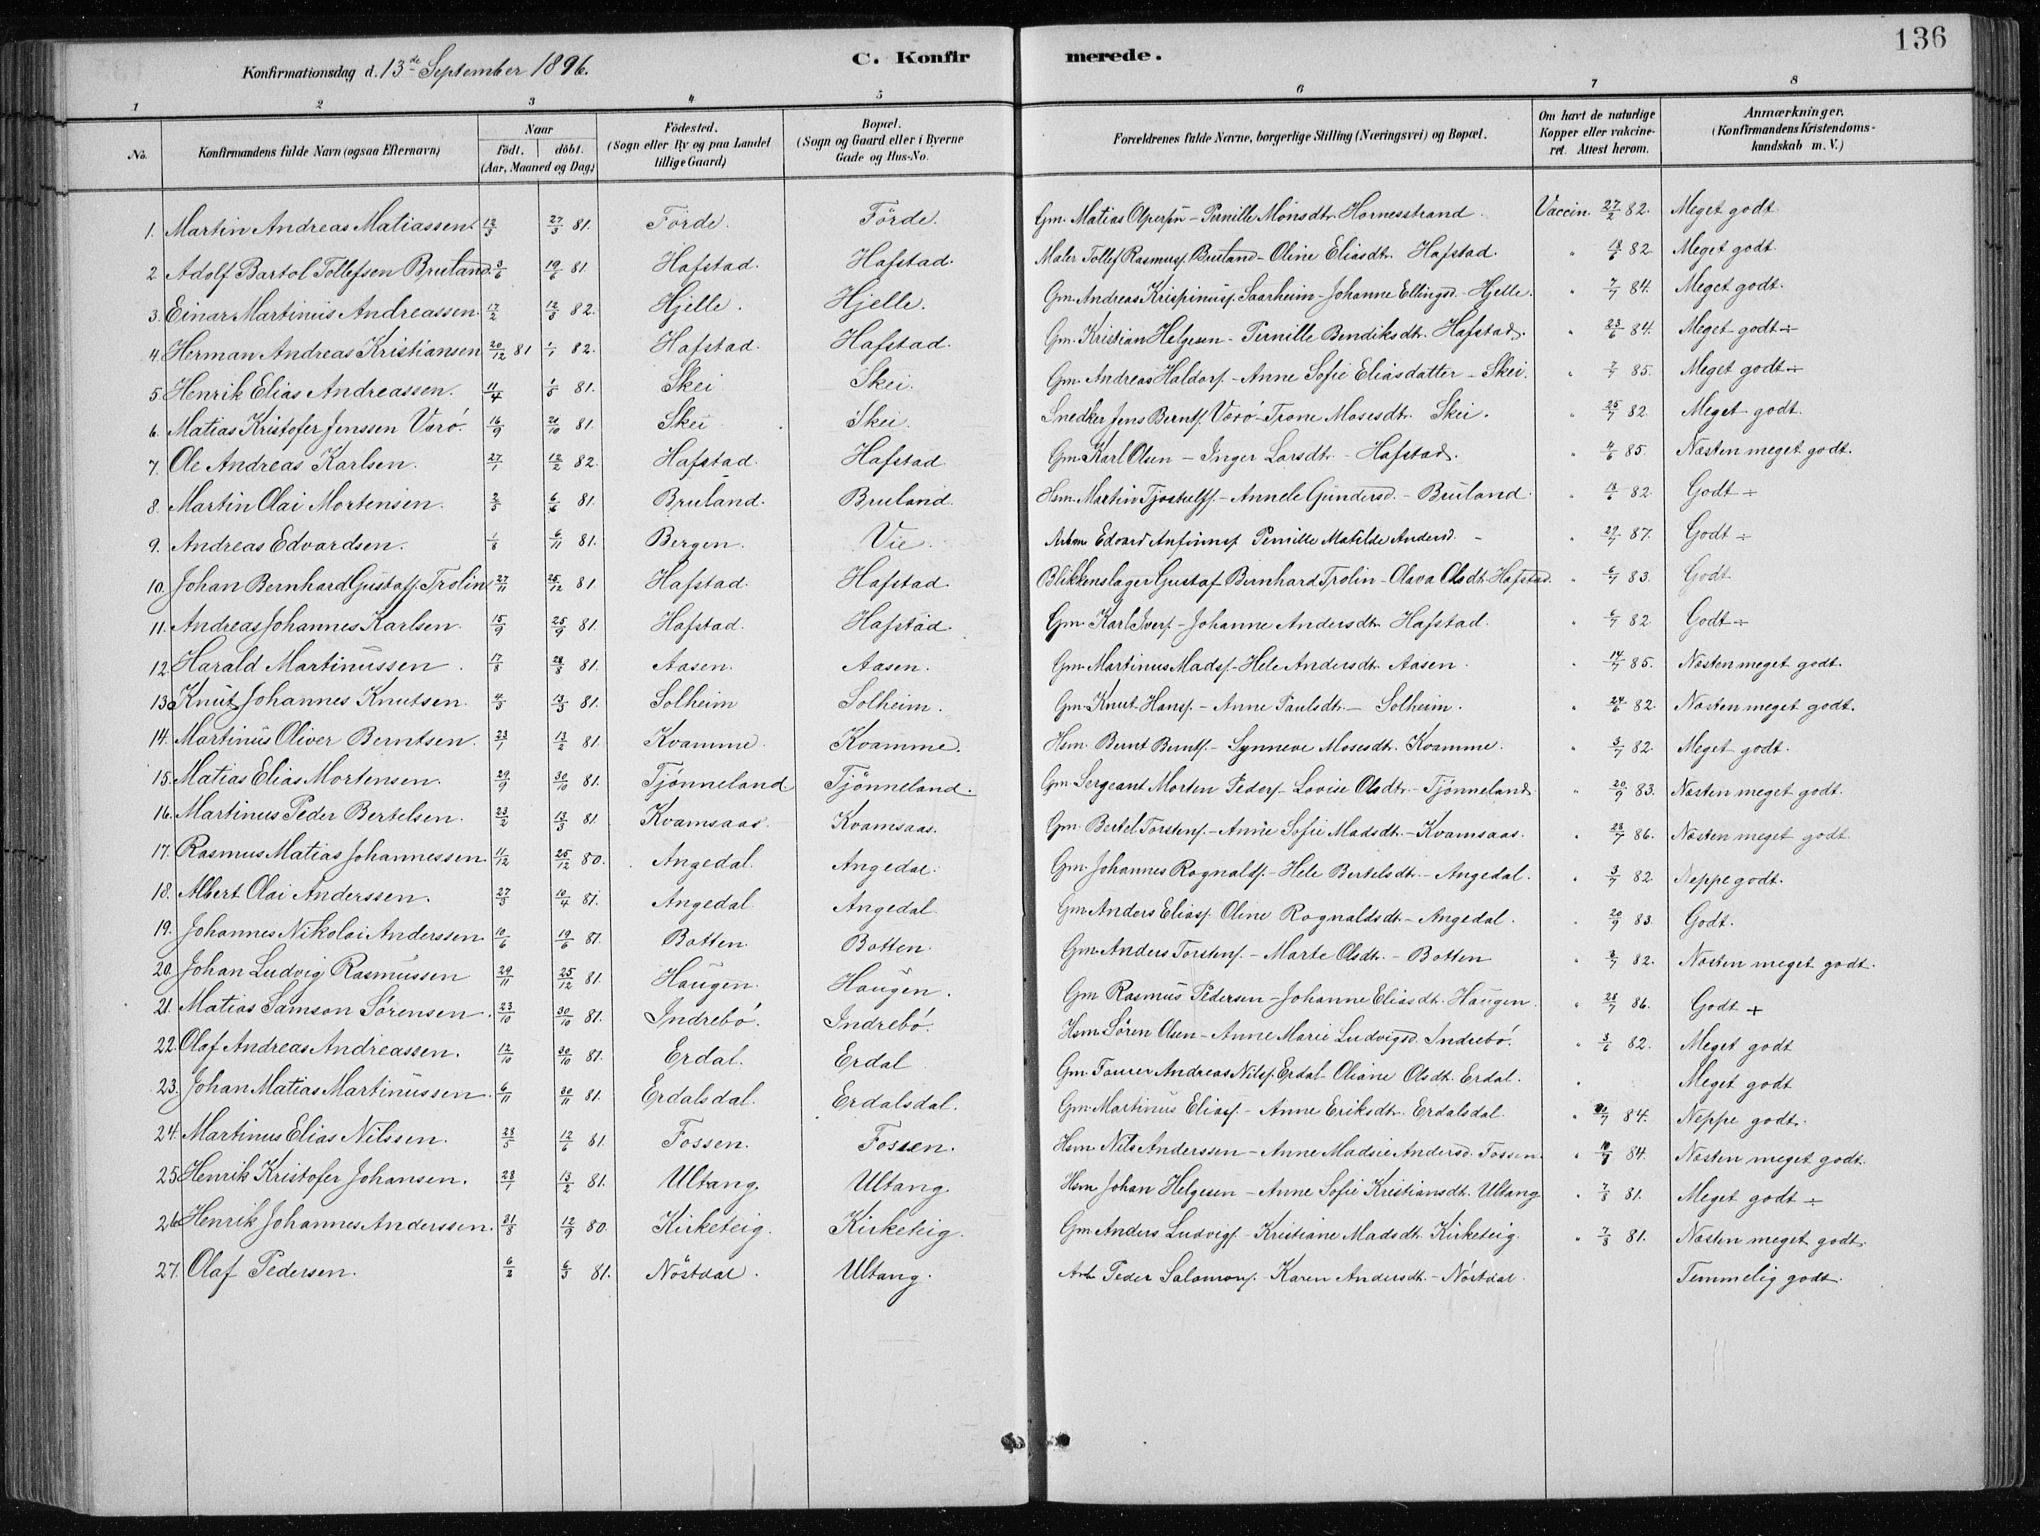 136
Konfirmationsdag d. 13de September 1896.
C. Konfirmerede.
1 2 3 4 5 6 7 8
No. Konfirmandens fulde Navn (ogsaa Efternavn) Naar födt. döbt. (Aar, Maaned og Dag) Födested. (Sogn eller By og paa Landet tillige Gaard) Bopæl. (Sogn og Gaard eller i Byerne Gade og Hus-No. Forældrenes fulde Navne, borgerlige Stilling (Næringsvei) og Bopæl. Om havt de naturlige Kopper eller vakcineret. Attest herom. Anmærkninger. (Konfirmandens Kristendomskundskab m. V.)
1. Martin Andreas Matiassen. 12/3 27/3 81. Förde. Förde. Gm. Matias Olpersen - Pernille Monsdtr. Hornesstrand. Vaccin. 27/2 82. Meget godt.
2 Adolf Bartol Tollefsen Bruland. 3/6 19/6 81. Hafstad. Hafstad. Maler Tollef Rasmusf. Bruland - Oline Eliasdtr. Hafstad. " 82. Meget godt.
3. Einar Martinus Andreassen. 17/2 12/3 82. Hjelle. Hjelle. Gm. Andreas Krispinusf. Saarheim - Johanne Ellingsd. - Hjelle. " 7/7 84. Meget godt.
4 Herman Andreas Kristiansen 20/12 81 1/1 82. Hafstad. Hafstad. Gm. Kristian Helgesen - Pernille Bendiksdtr. Hafstad. " 23/6 84. Meget godt ÷
5 Henrik Elias Andreassen. 11/4 1/5 81. Skei Skei. Gm. Andreas Haldorf. - Anne Sofie Eliasdatter - Skei. " 7/7 85. Meget godt ÷
6. Matias Kristofer Jenssen Varö. 16/9 81. Skei Skei. Snedker Jens Berntf. Varö - Trone Mosesdtr. Skei. " 25/7 82. Meget godt.
7. Ole Andreas Karlsen. 27/1 12/2 82. Hafstad. Hafstad Gm. Karl Olsen - Inger Larsdtr. - Hafstad. " 4/6 85. Næsten meget godt.
8. Martin Olai Mortensen. 6/6 81. Bruland. Bruland. Hsm. Martin Tjostelf. - Annele Gundersd. - Bruland. " 13/6 82. Godt ÷
9. Andreas Edvardsen. 6/11 81. Bergen. Vie. Arbm. Edvard Anfinnsf. Pernille Matilde Andersd. - " 87. Godt ÷
10. Johan Bernhard Gustaff. Trolin. 27/11 25/12 81 Hafstad. Hafstad. Blikkenslager Gustaf Bernhard Trolin - Olava Olsdtr. Hafstad. " 6/7 83. Godt.
11. Andreas Johannes Karlsen. 15/9 25/9 81. Hafstad. Hafstad. Gm. Karl Iverf. - Johanne Andersdtr. Hafstad. " 6/7 82. Godt ÷
12. Harald Martinussen. 17/8 28/8 81. Aasen. Aasen. Gm. Martinus Madsf. - Hele Andersdtr. Aasen. " 14/7 85. Næsten meget godt.
13. Knut Johannes Knutsen. 4/3 13/3 81. Solheim Solheim. Gm. Knut Hansf. - Anne Paulsdtr. - Solheim. " 24/6 82. Næsten meget godt.
14. Martinus Oliver Berntsen. 23/1 13/2 81. Kvamme. Kvamme. Hsm. Bernt Berntf. - Synneve Mosesdtr. Kvamme. " 3/7 82. Meget godt.
15. Matias Elias Mortensen. 29/9 30/10 81. Tjönneland. Tjönneland. Gm. Sergeant Morten Pedersf. - Lovise Olsdtr. - Tjönneland " 20/9 83. Næsten meget godt.
16. Martinus Peder Bertelsen. 23/2 13/3 81. Kvamsaas. Kvamsaas. Gm. Bertel Torstenf. - Anne Sofie Madsdtr. - Kvamsaas. " 28/7 86. Næsten meget godt.
17. Rasmus Matias Johannessen. 11/12 25/12 80. Angedal. Angedal. Gm. Johannes Rognaldf. - Hele Bertelsdtr. - Angedal. " 3/7 82. Neppe godt.
18. Albert Olai Anderssen. 27/3 10/4 81. Angedal Angedal. Gm. Anders Eliasf. Oline Rognaldsdtr. - Angedal. " 20/9 83. Godt.
19. Johannes Nikolai Anderssen. 10/6 19/6 81. Botten Botten. Gm. Anders Torstenf. - Marte Olsdtr. - Botten " 82. Næsten meget godt.
20. Johan Ludvig Rasmussen 29/11 25/12 81. Haugen. Haugen. Gm. Rasmus Pedersen - Johanne Eliasdtr. Haugen. " 28/7 86. Godt +
21. Matias Samson Sörensen. 23/10 30/10 81. Indrebö. Indrebö. Hsm. Sören Olsen - Anne Marie Ludvigsd. Indrebö. " 3/6 82. Meget godt
22. Olaf Andreas Andreassen. 12/10 30/10 81. Erdal. Erdal Gm. Fourer Andreas Nilsf. Erdal - Oliane Olsdtr. Erdal. " Meget godt
23. Johan Matias Martinussen. 6/11 81. Erdalsdal. Erdalsdal. Gm. Martinus Eliasf. - Anne Eriksdtr. Erdalsdal. " 84. Neppe godt.
24. Martinus Elias Nilssen. 28/5 12/6 81. Fossen. Fossen. Hsm. Nils Anderssen - Anne Madsie Andersd. Fossen. " 84. Næsten meget godt.
25. Henrik Kristofer Johansen. 28/1 13/2 81. Ultang. Ultang. Hsm. Johan Helgesen - Anne Sofie Kristiansdtr. Ultang " 7/8 81. Meget godt ÷
26. Henrik Johannes Anderssen. 21/8 12/9 80. Kirketeig. Kirketeig. Gm. Anders Ludvigf. - Kristiane Madsdtr. Kirketeig. " 7/8 81. Næsten meget godt.
27. Olaf Pedersen. 6/2 6/3 81. Nöstdal. Ultang. Arb. Peder Salomonf. Karen Andersdtr. - Nöstdal. Temmelig godt.